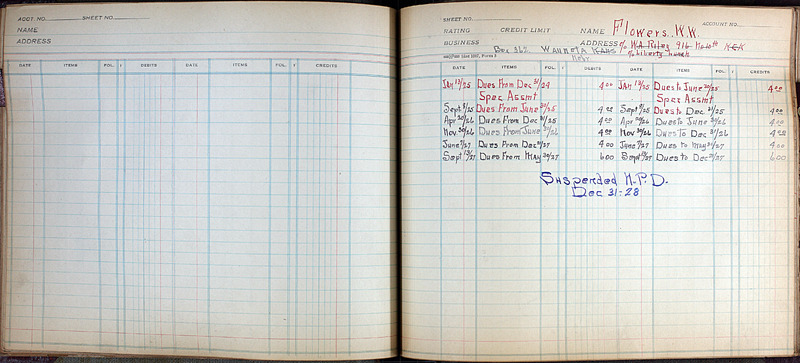 ACCT NO. SHEET NO.
NAME
ADDRESS
DATE ITEMS FOL. DEBITS DATE ITEMS FOL. CREDITS
SHEET NO. ACCOUNT NO.
RATING CREDIT LIMIT NAME Flowers. W.W.
BUSINESS Box 362 ADDRESS c/o W.A. Riley 916 No 10th K.C.K
DATE ITEMS FOL. DEBITS DATE ITEMS FOL. CREDITS
Jan 13/25 Dues From Dec 31/24 4 00 Jan 13/25 Dues to June 30/25 4 00
Spec Assmt Spec Assmt
Sept 8/25 Dues From June 30/25 4 00 Sept 8/25 Dues to Dec 31/25 4 00
Apr 30/26 Dues From Dec 31/25 4 00 Apr 30/26 Dues to June 30/26 4 00
Nov 30/26 Dues From June 30/26 4 00 Nov 30/26 Dues To Dec 31/26 4 00
June 1/27 Dues From Dec 31/27 4 00 June 1/27 Dues to May 31/27 4 00
Sept 13/27 Dues From May 30/27 6 00 Sept 13/27 Dues to Dec 31/27 6 00
Suspended N.P.D.
Dec 31-28